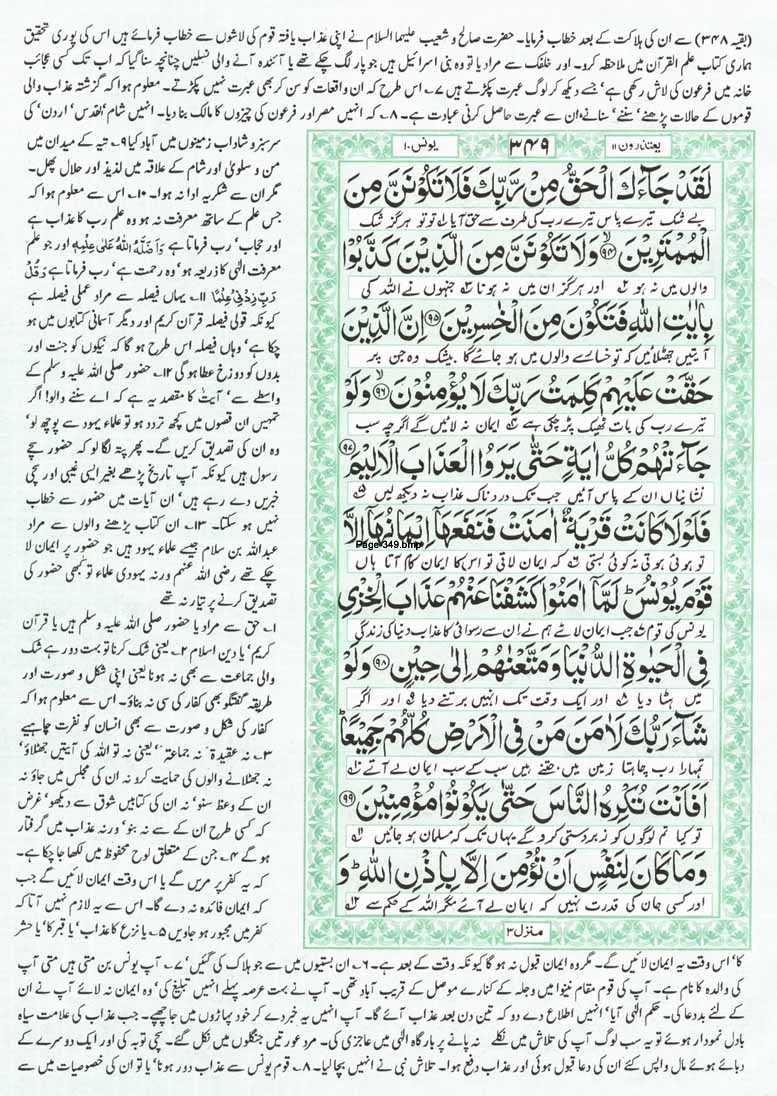 (بقیہ ۳۴۸) سے ان کی ہلاکت کے بعد خطاب فرمایا۔ حضرت صالح و شعیب علیہما السلام نے اپنی عذاب یافتہ قوم کی لاشوں سے خطاب فرمائے ہیں اس کی پوری تحقیق
ہماری کتاب علم القرآن میں ملاحظہ کرو۔ اور خلفک سے مراد یا تو وہ بنی اسرائیل ہیں جو پار لگ چکے تھے یا آئندہ آنے والی نسلیں چنانچہ سنا گیا کہ اب تک کسی عجائب
خانہ میں فرعون کی لاش رکھی ہے' جسے دیکھ کر لوگ عبرت پکڑتے ہیں ۷۔ اس طرح کہ ان واقعات کو سن کر بھی عبرت نہیں پکڑتے۔ معلوم ہوا کہ گزشتہ عذاب والی
قوموں کے حالات پڑھنے' سننے' سنانے' ان سے عبرت حاصل کرنی عبادت ہے۔ ۸۔ کہ انہیں مصر اور فرعون کی چیزوں کا مالک بنا دیا۔ انہیں شام' قدس' اردن' کی
یعتذرون ۱۱ ۳۴۹ یونس ۱۰
لَقَدْ جَآءَكَ الْحَقُّ مِنْ رَّبِّكَ فَلَا تَكُوْنَنَّ مِنَ
بے شک تیرے پاس تیرے رب کی طرف سے حق آیا لہ تو تو ہرگز شک
الْمُمْتَرِيْنَ ﴿۹۴﴾ وَلَا تَكُوْنَنَّ مِنَ الَّذِيْنَ كَذَّبُوْا
والوں میں نہ ہو اور ہرگز ان میں نہ ہونا جنہوں نے اللہ کی
بِاٰيٰتِ اللّٰهِ فَتَكُوْنَ مِنَ الْخٰسِرِيْنَ ﴿۹۵﴾ اِنَّ الَّذِيْنَ
آیتیں جھٹلائیں کہ تو خسارے والوں میں ہو جائے گا بیشک وہ جن پر
حَقَّتْ عَلَيْهِمْ كَلِمَتُ رَبِّكَ لَا يُؤْمِنُوْنَ ﴿۹۶﴾ وَلَوْ
تیرے رب کی بات ٹھیک پڑ چکی ہے ایمان نہ لائیں گے اگرچہ سب
جَآءَتْهُمْ كُلُّ اٰيَةٍ حَتّٰى يَرَوُا الْعَذَابَ الْاَلِيْمَ ﴿۹۷﴾
نشانیاں ان کے پاس آئیں جب تک درد ناک عذاب نہ دیکھ لیں
فَلَوْلَا كَانَتْ قَرْيَةٌ اٰمَنَتْ فَنَفَعَهَاۤ اِيْمَانُهَاۤ اِلَّا
Page-349.bmp
تو ہوئی ہوتی نہ کوئی بستی کہ ایمان لاتی تو اس کا ایمان کام آتا ہاں
قَوْمَ يُوْنُسَ ؕ لَمَّاۤ اٰمَنُوْا كَشَفْنَا عَنْهُمْ عَذَابَ الْخِزْيِ
یونس کی قوم جب ایمان لائے ہم نے ان سے رسوائی کا عذاب دنیا کی زندگی
فِي الْحَيٰوةِ الدُّنْيَا وَمَتَّعْنٰهُمْ اِلٰى حِيْنٍ ﴿۹۸﴾ وَلَوْ
میں ہٹا دیا اور ایک وقت تک انہیں برتنے دیا اور اگر
شَآءَ رَبُّكَ لَاٰمَنَ مَنْ فِي الْاَرْضِ كُلُّهُمْ جَمِيْعًا ؕ
تمہارا رب چاہتا زمین میں جتنے ہیں سب کے سب ایمان لے آتے
اَفَاَنْتَ تُكْرِهُ النَّاسَ حَتّٰى يَكُوْنُوْا مُؤْمِنِيْنَ ﴿۹۹﴾
تو کیا تم لوگوں کو زبردستی کرو گے یہاں تک کہ مسلمان ہو جائیں
وَمَا كَانَ لِنَفْسٍ اَنْ تُؤْمِنَ اِلَّا بِاِذْنِ اللّٰهِ ؕ وَ
اور کسی جان کی قدرت نہیں کہ ایمان لے آئے مگر اللہ کے حکم سے
منزل ۳
سرسبز و شاداب زمینوں میں آباد کیا ۹۔ تیہ کے میدان میں
من و سلویٰ اور شام کے علاقہ میں لذیذ اور حلال پھل۔
مگر ان سے شکریہ ادا نہ ہوا۔ ۱۰۔ اس سے معلوم ہوا کہ
جس علم کے ساتھ معرفت نہ ہو وہ علم رب کا عذاب ہے
اور حجاب' رب فرماتا ہے وَاَضَلَّهُ اللّٰهُ عَلٰى عِلْمٍ اور جو علم
معرفت الٰہی کا ذریعہ ہو' وہ رحمت ہے' رب فرماتا ہے وَقُلْ
رَّبِّ زِدْنِيْ عِلْمًا ۱۱۔ یہاں فیصلہ سے مراد عملی فیصلہ ہے
کیونکہ قولی فیصلہ قرآن کریم اور دیگر آسمانی کتابوں میں ہو
چکا ہے' وہاں فیصلہ اس طرح ہو گا کہ نیکوں کو جنت اور
بدوں کو دوزخ عطا ہو گی ۱۲۔ حضور صلی اللہ علیہ وسلم کے
واسطے سے' آیت کا مقصد یہ ہے کہ اے سننے والو! اگر
تمہیں ان قصوں میں کچھ تردد ہو تو علماء یہود سے پوچھ لو'
وہ ان کی تصدیق کریں گے۔ پھر پتہ لگا لو کہ حضور سچے
رسول ہیں کیونکہ آپ تاریخ پڑھے بغیر ایسی غیبی اور سچی
خبریں دے رہے ہیں' ان آیات میں حضور سے خطاب
نہیں ہو سکتا۔ ۱۳۔ ان کتاب پڑھنے والوں سے مراد
عبداللہ بن سلام جیسے علماء یہود ہیں جو حضور پر ایمان لا
چکے تھے رضی اللہ عنہم ورنہ یہودی علماء تو کبھی حضور کی
تصدیق کرنے پر تیار نہ تھے
۱۔ حق سے مراد یا حضور صلی اللہ علیہ وسلم ہیں یا قرآن
کریم' یا دین اسلام ۲۔ یعنی شک کرنا تو بہت دور ہے شک
والی جماعت سے بھی نہ ہونا یعنی اپنی شکل و صورت اور
طریقہ گفتگو بھی کفار کی سی نہ بناؤ۔ اس سے معلوم ہوا کہ
کفار کی شکل و صورت سے بھی انسان کو نفرت چاہیے
۳۔ نہ عقیدۃً نہ جماعتہً' یعنی نہ تو اللہ کی آیتیں جھٹلاؤ'
نہ جھٹلانے والوں کی حمایت کرو نہ ان کی مجلس میں جاؤ نہ
ان کے وعظ سنو' نہ ان کی کتابیں شوق سے دیکھو' غرض
کہ کسی طرح ان کے سے نہ بنو' ورنہ عذاب میں گرفتار
ہو گے ۴۔ جن کے متعلق لوح محفوظ میں لکھا جا چکا ہے۔
کہ یہ کفر پر مریں گے یا اس وقت ایمان لائیں گے جب
کہ ایمان فائدہ نہ دے گا۔ اس سے یہ لازم نہیں آتا کہ
کفر میں مجبور ہو جاویں ۵۔ یا نزع کا عذاب' یا قبر کا' یا حشر
کا' اس وقت یہ ایمان لائیں گے۔ مگر وہ ایمان قبول نہ ہو گا کیونکہ وقت کے بعد ہے۔ ۶۔ ان بستیوں میں سے جو ہلاک کی گئیں' ۷۔ آپ یونس بن متی ہیں متی آپ
کی والدہ کا نام ہے۔ آپ کی قوم مقام نینوا میں دجلہ کے کنارے موصل کے قریب آباد تھی۔ آپ نے بہت عرصہ پہلے انہیں تبلیغ کی' وہ ایمان نہ لائے آپ نے ان
کے لئے بددعا کی۔ حکم الٰہی آیا' انہیں اطلاع دے دو کہ تین دن بعد عذاب آئے گا۔ آپ انہیں یہ خبر دے کر خود پہاڑوں میں جا چھپے۔ جب عذاب کی علامت سیاہ
بادل نمودار ہوئے تو یہ سب لوگ آپ کی تلاش میں نکلے نہ پانے پر بارگاہ الٰہی میں عاجزی کی۔ مرد عورتیں جنگلوں میں نکل گئے۔ سچی توبہ کی اور ایک دوسرے کے
دبائے ہوئے مال واپس کئے ان کی دعا قبول ہوئی اور عذاب دفع ہوا۔ تلاش نبی نے انہیں بچا لیا۔ ۸۔ قوم یونس سے عذاب دور ہونا' یا تو ان کی خصوصیات میں سے